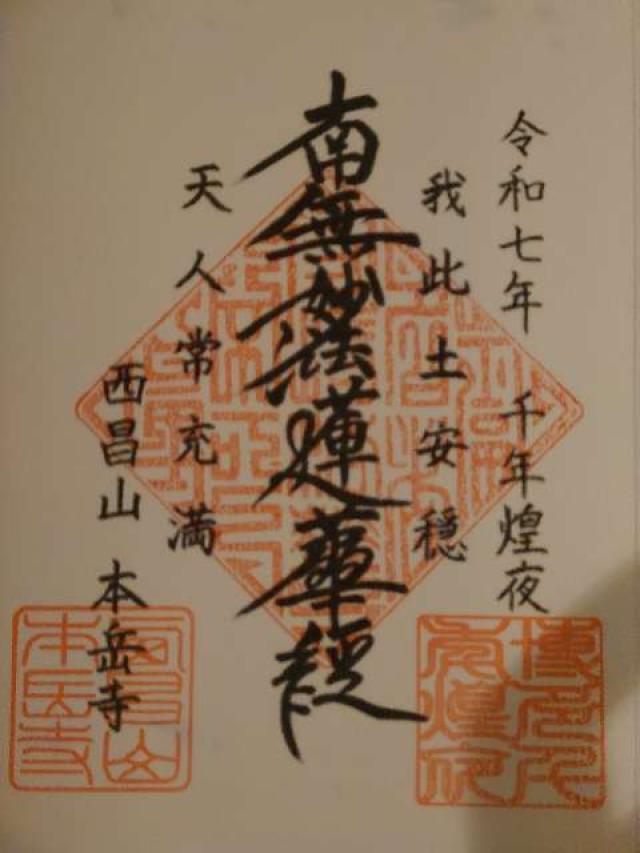 令和七年 千年煌夜
我此土安穏
南無妙法蓮華経
天人常充満
西昌山 本岳寺